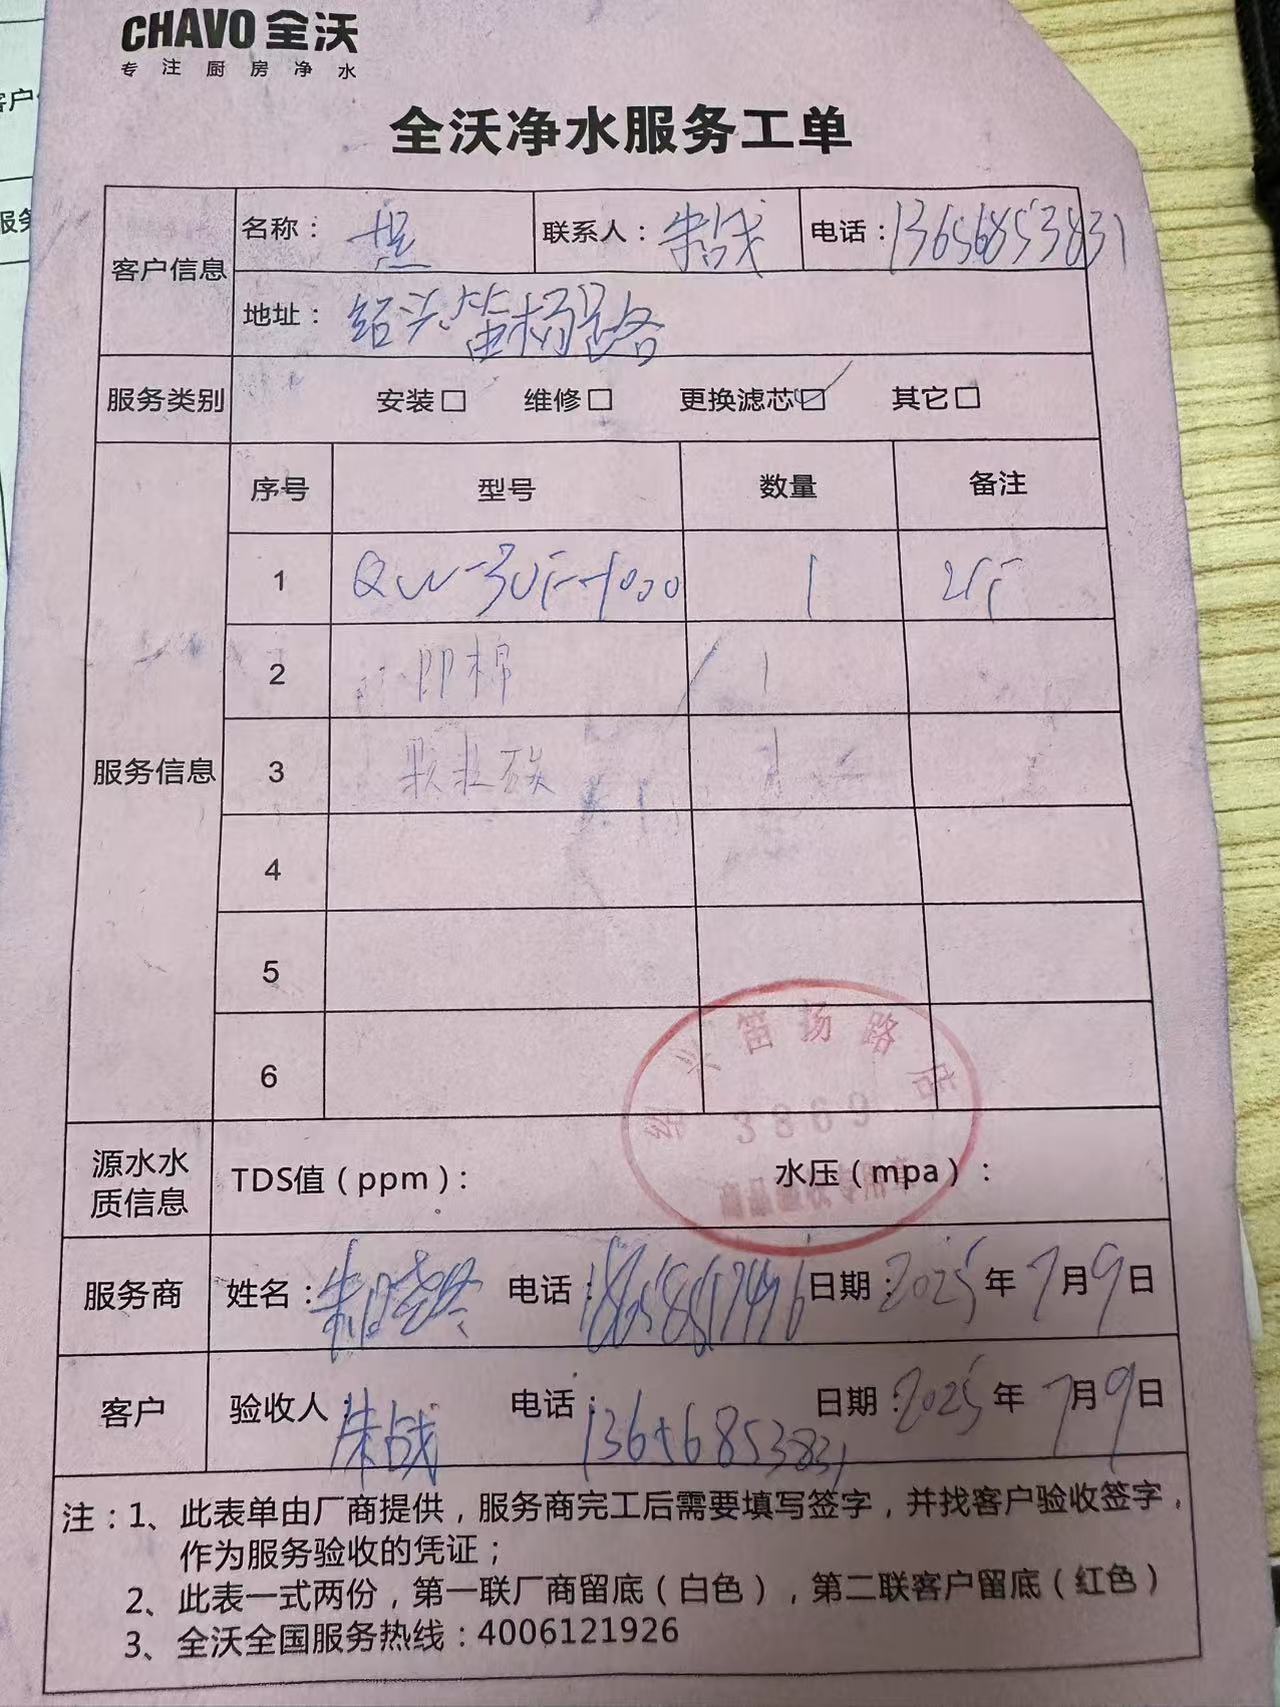 CHAVO 全沃
专注厨房净水
全沃净水服务工单
客户信息 名称： 联系人：朱战 电话：13656853831
地址：绍兴笛扬路
服务类别 安装□ 维修□ 更换滤芯☑ 其它□
服务信息 序号 型号 数量 备注
1 QW-3UF-1000 1
2 PP棉 1
3 颗粒炭 1
4
5
6
绍兴笛扬路店
3869
源水水质信息 TDS值（ppm）： 水压（mpa）：
服务商 姓名：朱 电话： 日期：2025年7月9日
客户 验收人：朱战 电话：13656853831 日期：2025年7月9日
注：1、此表单由厂商提供，服务商完工后需要填写签字，并找客户验收签字，
作为服务验收的凭证；
2、此表一式两份，第一联厂商留底（白色），第二联客户留底（红色）
3、全沃全国服务热线：4006121926